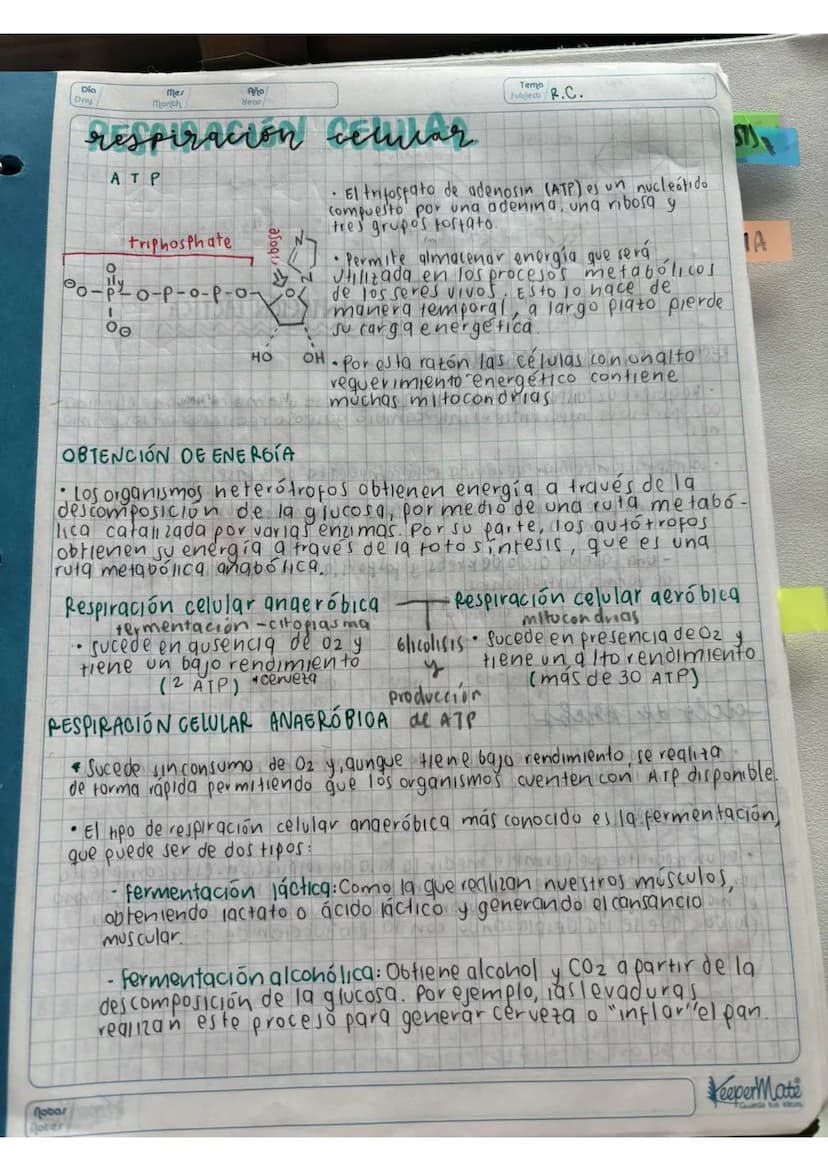 Día
Day
Mes
Month
Año
Year
Tema
Subject
R.C.
RESPIRACIÓN CELULAR
respiración celular
A T P
• El trifosfato de adenosin (ATP) es un nucleótido
compuesto por una adenina, una ribosa y
tres grupos fosfato.
triphosphate
ribose
N
N
O
⊖O-P-O-P-O-P-O
O
O⊖
HO OH
• Permite almacenar energía que será
utilizada en los procesos metabólicos
de los seres vivos. Esto lo hace de
manera temporal, a largo plazo pierde
su carga energética.
• Por esta razón las células con un alto
requerimiento energético contiene
muchas mitocondrias
OBTENCIÓN DE ENERGÍA
• Los organismos heterótrofos obtienen energía a través de la
descomposición de la glucosa, por medio de una ruta metabó-
lica catalizada por varias enzimas. Por su parte, los autótrofos
obtienen su energía a través de la fotosíntesis, que es una
ruta metabólica anabólica.
Respiración celular anaeróbica
fermentación - citoplasma
• Sucede en ausencia de O2 y
tiene un bajo rendimiento
(2 ATP) *cerveza
Glicolisis
y
producción
de ATP
Respiración celular aeróbica
mitocondrias
• Sucede en presencia de O2 y
tiene un alto rendimiento
(más de 30 ATP)
RESPIRACIÓN CELULAR ANAERÓBICA
• Sucede sin consumo de O2 y, aunque tiene bajo rendimiento, se realiza
de forma rápida permitiendo que los organismos cuenten con ATP disponible.
• El tipo de respiración celular anaeróbica más conocido es la fermentación,
que puede ser de dos tipos:
- Fermentación láctica: Como la que realizan nuestros músculos,
obteniendo lactato o ácido láctico y generando el cansancio
muscular.
- Fermentación alcohólica: Obtiene alcohol y CO2 a partir de la
descomposición de la glucosa. Por ejemplo, las levaduras
realizan este proceso para generar cerveza o "inflar" el pan.
Notas
Notes
KeeperMate
Guarda tus ideas
IA